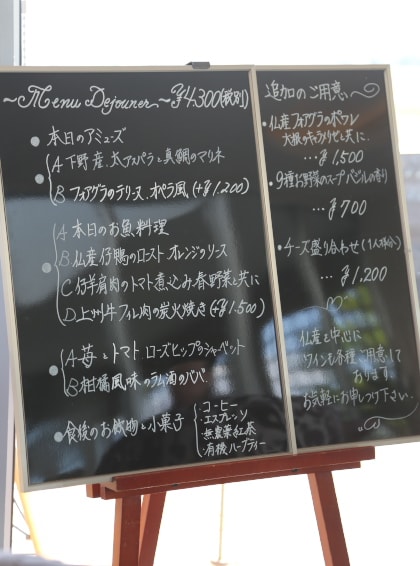 ~Menu Dejeuner~ ¥4,300(税別)
• 本日のアミューズ
A 下野産、太アスパラと真鯛のマリネ
B フォアグラのテリーヌ、オペラ風 (+¥1,200)
A 本日のお魚料理
B 仏産仔鴨のロースト オレンジのソース
C 仔羊肩肉のトマト煮込み、春野菜と共に
D 上州牛フィレ肉の炭火焼き (+¥1,500)
A 苺とトマト、ローズヒップのシャーベット
B 柑橘風味のラム酒のババ
• 食後のお飲物と小菓子
・コーヒー
・エスプレッソ
・無農薬紅茶
・有機ハーブティー
追加のご用意
• 仏産フォアグラのポワレ
大根のキャラメリゼと共に
…¥1,500
• 9種お野菜のスープ バジルの香り
…¥700
• チーズ盛り合わせ (1人前)
…¥1,200
仏産を中心に
ワインも各種ご用意して
おります。
お気軽にお申しつけ下さい。